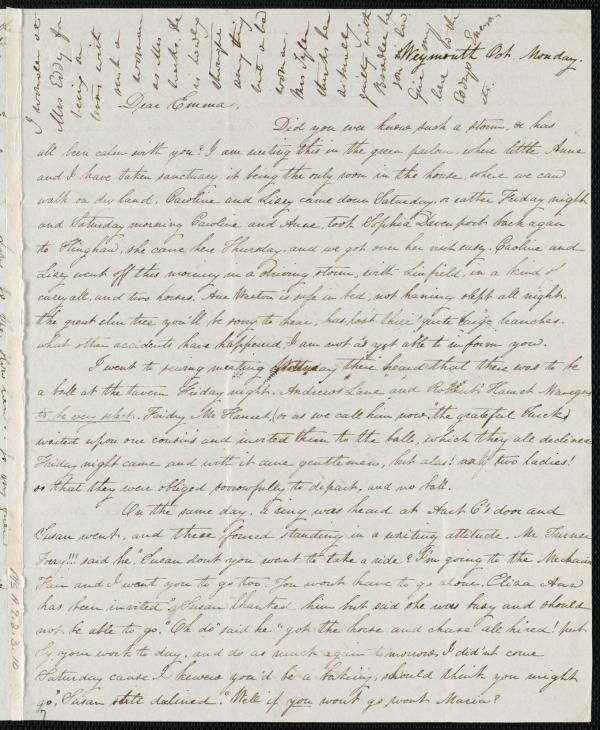 Weymouth Oct. Monday.
Dear Emma,
Did you ever know such a storm, or has
all been calm with you? I am writing this in the green parlour, where little Anne
and I have taken sanctuary, it being the only room in the house, where we can
walk on dry land. Caroline and Lizzy came down Saturday, or rather Friday night
and Saturday morning Caroline and Anne, took Sophia Davenport back again
to Hingham, she came here Thursday, and we got over her visit easy. Caroline and
Lizzy went off this morning in a driving storm, with Linfield, in a kind of
carry all, and two horses. Ann Weston is safe in bed, not having slept all night.
The great elm tree you'll be sorry to hear, has lost three quite large branches.
what other accidents have happened, I am not as yet able to inform you.
I went to sewing meeting there heard that there was to be
a ball at the tavern Friday night. Andrews Lane and Hunt Managers
to be very select. Friday Mr. (or as we call him now, "the grateful
waited upon our cousins and invited them to the balls, which they all declined
Friday night came and with it came gentlemen, but alas! only two ladies!
so that they were obliged sorrowfully to depart, and no ball.
On the same day, a ring was heard at Aunt C's door and
Susan went, and there found, standing in a waiting attitude, Mr Turner
Torry!!! said he "Susan dont you want to take a ride? I'm going to the Mechanic
Fair and I want you to go too. You wont have to go alone. Eliza Ann
has been invited" Susan thanked him but said she was busy and should
not be able to go." Oh do" said he "got the horse and chase all hired! put
by your work to day, and do as much again tomorrow, I did'nt come
Saturday cause I knewew you'd be a baking, should think you might
go". Susan still declined. "Well if you wont go wont Maria?
I wonder at
Mrs Eddy for
being on
terms with
such a
woman
as Mrs
is hardly
charge
any thing
but a bad
woman.
Mrs Tyler
thinks her
actually
guilty with
her
son in law.
Give my
love to the
Eddys Emma,
etc.